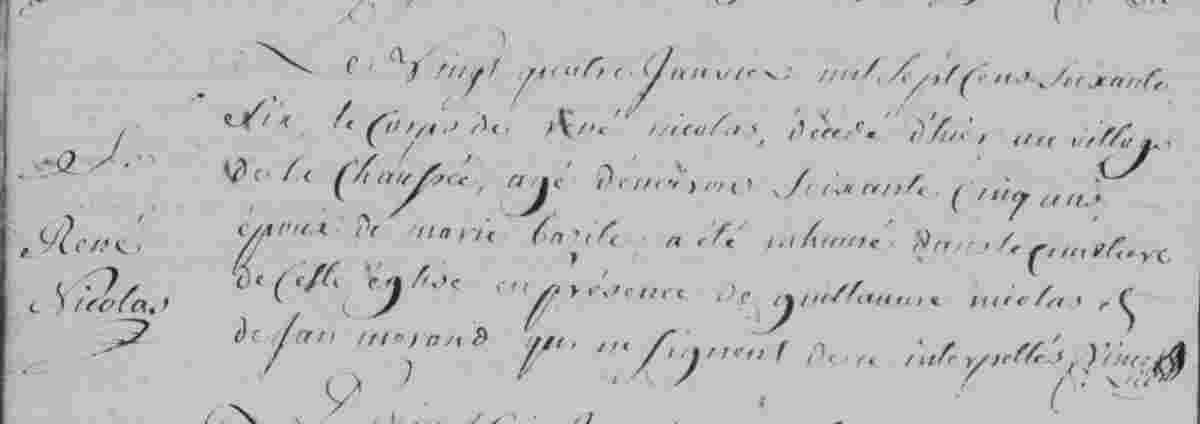 Le Vingt quatre Janvier mil sept Cens soixante
Six, le Corps de René nicolas, décédé d'hier au village
De la Chaussée, agé d'environ Soixante Cinq ans,
époux de marie bazile, a été inhumé dans le cimetiere
de Cette église en présence de guillaume nicolas &
de Jan morand qui ne signent de ce interpellés
S.
René
Nicolas